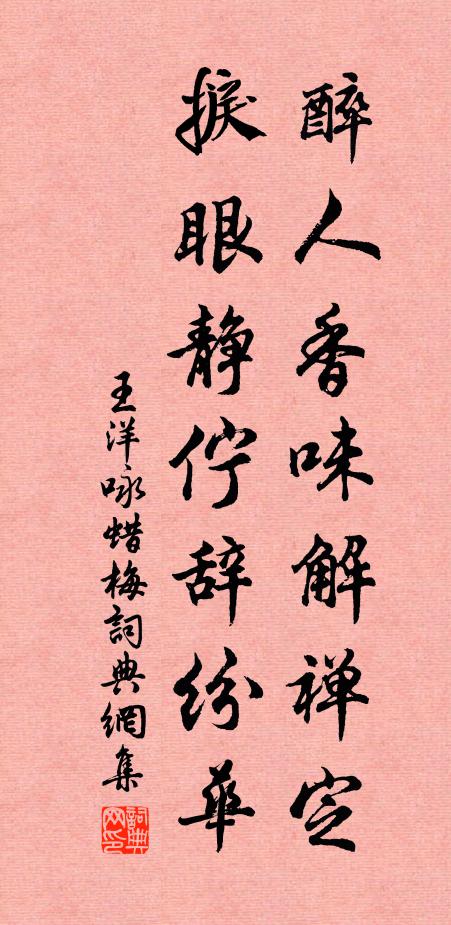 醉人香味解禅定
捩眼静伫辞纷华
王洋咏蜡梅詞典網集
詞典网印